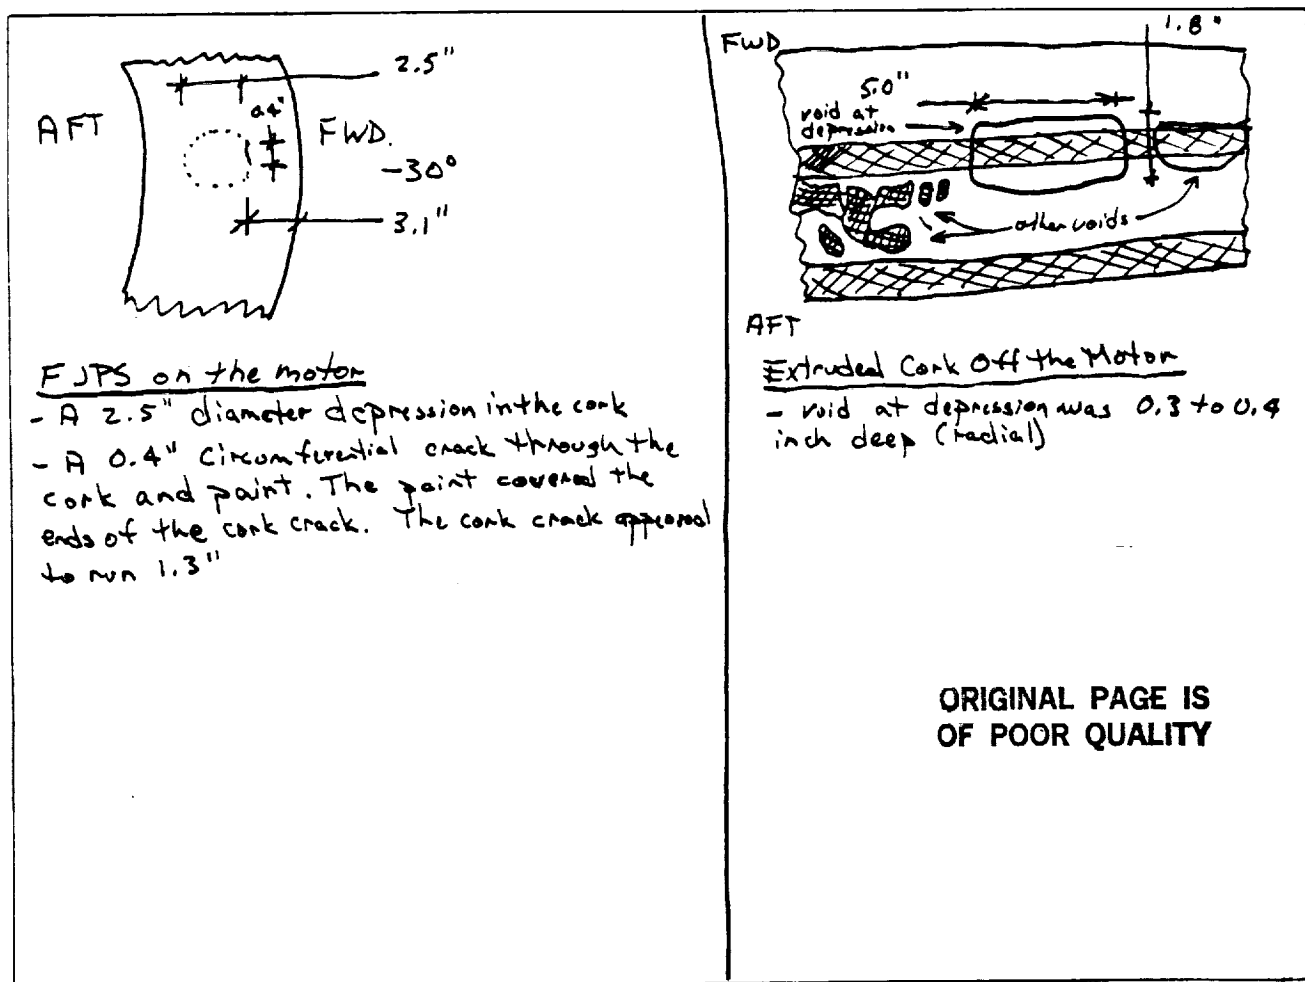 2.5"
0.4"
AFT
FWD.
-30°
3.1"
FJPS on the motor
- A 2.5" diameter depression in the cork
- A 0.4" circumferential crack through the
cork and paint. The paint covered the
ends of the cork crack. The cork crack appeared
to run 1.3"
FWD
1.8"
5.0"
void at
depression
other voids
AFT
Extruded Cork Off the Motor
- void at depression was 0.3 to 0.4
inch deep (radial)
ORIGINAL PAGE IS
OF POOR QUALITY